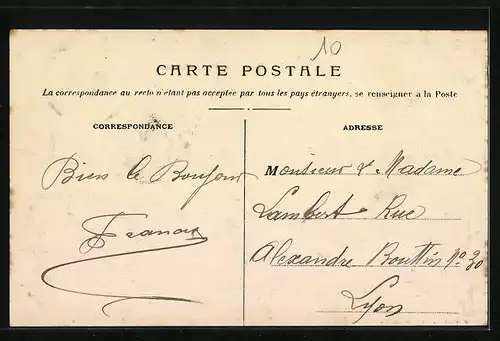 10
CARTE POSTALE
La correspondance au recto n'étant pas acceptée par tous les pays étrangers, se renseigner à la Poste
CORRESPONDANCE
Bien le Bonjour
ADRESSE
Monsieur & Madame
Lambert Rue
Alexandre Bouttin No 30
Lyon